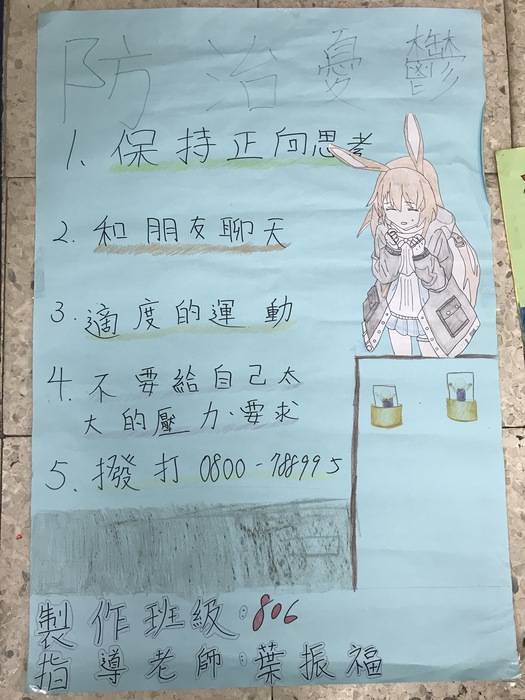 防治憂鬱
1. 保持正向思考
2. 和朋友聊天
3. 適度的運動
4. 不要給自己太
大的壓力、要求
5. 撥打 0800-788995
製作班級：806
指導老師：葉振福